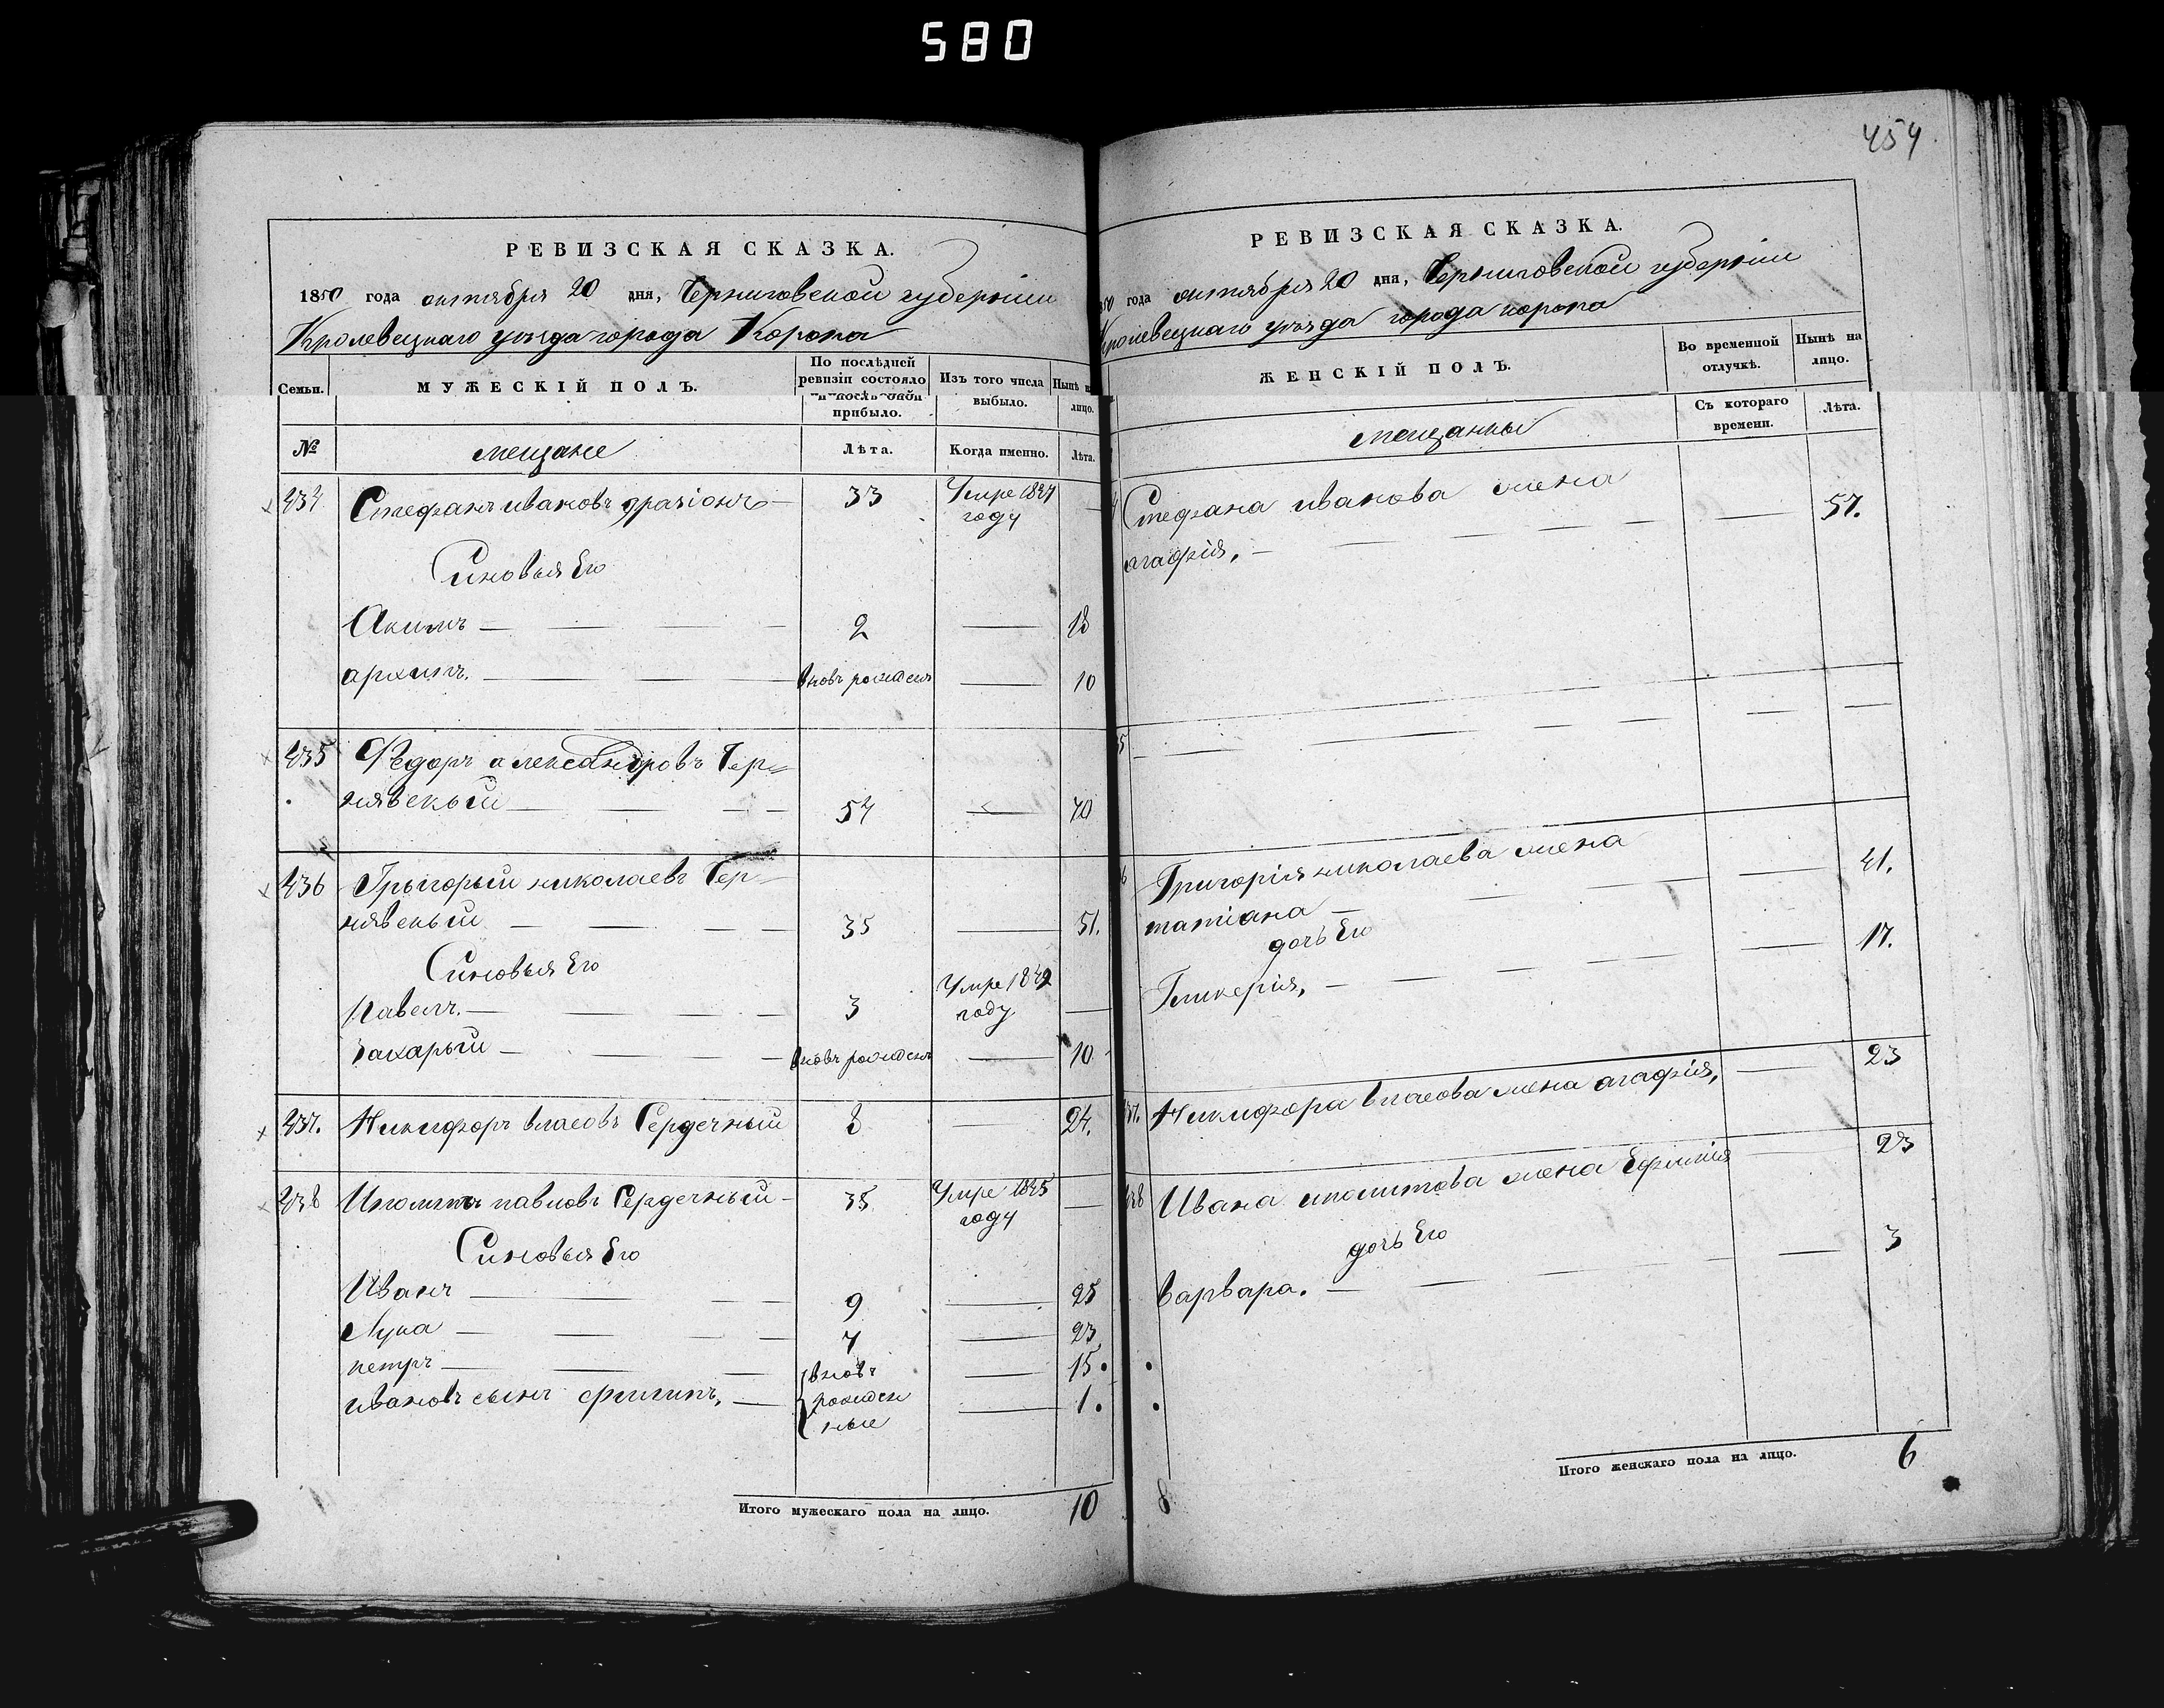 580
454
РЕВИЗСКАЯ СКАЗКА.
1850 года октября 20 дня, Черниговской губерніи
Кролевецкаго уѣзда города Коропа
Семьи.
МУЖЕСКІЙ ПОЛЪ.
По послѣдней
ревизіи состояло
и послѣ оной
прибыло.
Изъ того числа
выбыло.
Нынѣ на
лицо.
№
мещане
Лѣта.
Когда именно.
Лѣта.
434 Стефанъ ивановъ 33 Умре 1847
году
Синовья Его
Акимъ 2 18
архипъ. вновь рожден 10
435 Федоръ александровъ Чер=
нявскый 54 70
436 Грыгорый николаевъ Чер=
нявскый 35 51.
Синовья Его
Павелъ. 3 Умре 1842
году
Захарый вновь рожден 10
437. Никифоръ власовъ Сердечный 8 24.
438 Иполитъ павловъ Сердечный 35 Умре 1835
году
Синовья Его
Иванъ 9 25
Лука 7 23
петръ вновь 15.
ивановъ сынъ филипъ, рожден 1.
ные
Итого мужескаго пола на лицо. 10
РЕВИЗСКАЯ СКАЗКА.
1850 года октября 20 дня, Черниговской губерніи
Кролевецкаго уѣзда города коропа
ЖЕНСКІЙ ПОЛЪ.
Во временной
отлучкѣ.
Нынѣ на
лицо.
мещанкы
Съ котораго
времени.
Лѣта.
Стефана иванова жена 57.
агафія,
5
6 Григорія николаева жена 41.
татіана
дочь Его 17.
Гликерія,
37. Никифора власова жена агафія, 23
438 Ивана иполитова жена Ефимія 23
дочь Его
варвара. 3
Итого женскаго пола на лицо. 6
8